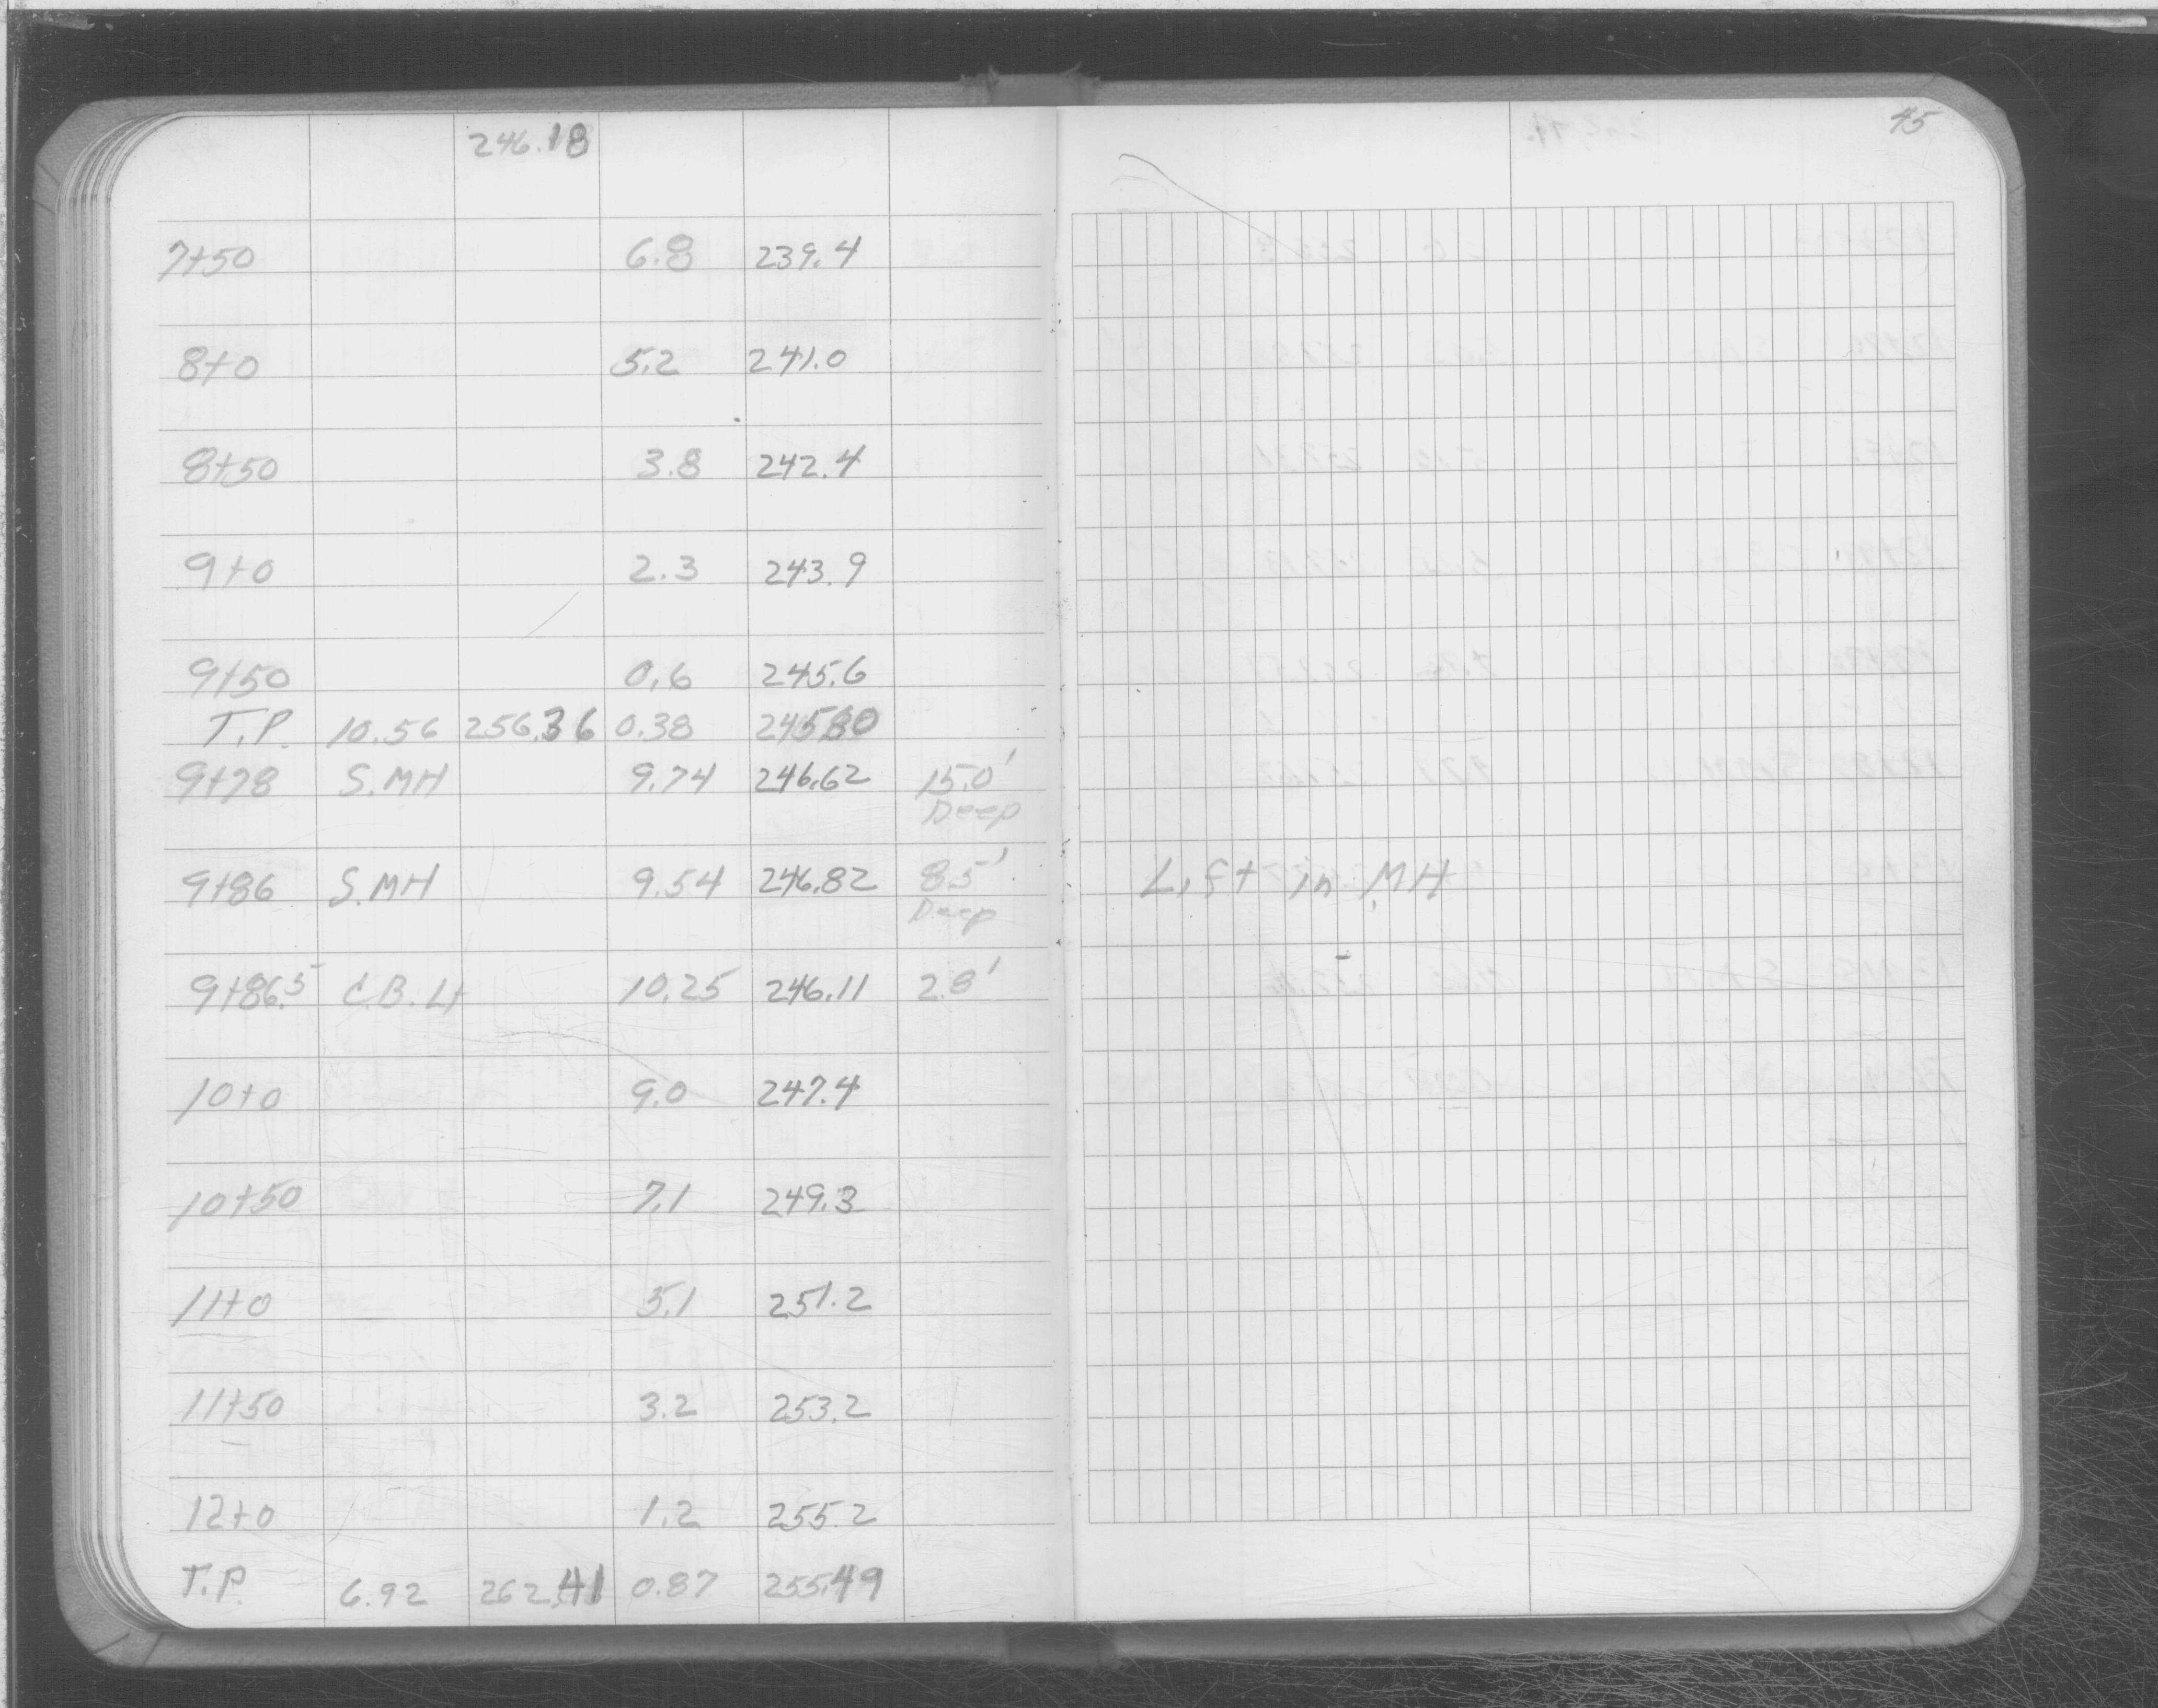 246.18
45
7+50 6.8 239.4
8+0 5.2 241.0
8+50 3.8 242.4
9+0 2.3 243.9
9+50 0.6 245.6
T.P. 10.56 256.36 0.38 245.80
9+78 S.MH 9.74 246.62 15.0'
Deep
9+86 S.MH 9.54 246.82 8.5' Lift in MH
Deep
9+86.5 C.B. Lt 10.25 246.11 2.8'
10+0 9.0 247.4
10+50 7.1 249.3
11+0 5.1 251.2
11+50 3.2 253.2
12+0 1.2 255.2
T.P. 6.92 262.41 0.87 255.49